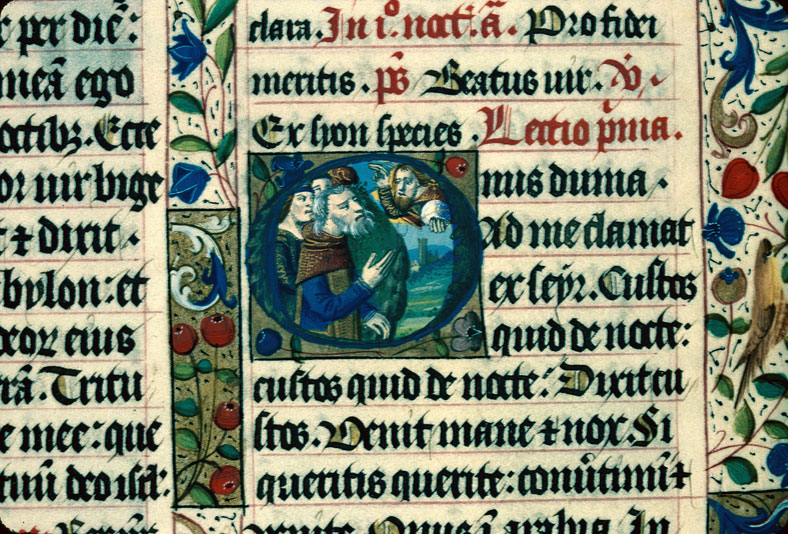 r per diē:
meā ego
octibꝫ. Ecce
or uir bige
t ⁊ dixit.
bylon: et
deoꝝ eius
rā. Tritu
e mee: que
tuū deo isrl:
clara. In i.º noct. ā. Pro fidei
meritis. p̄s Beatus uir. ꝟ.
Ex syon species. Lectio p̄ma.
Onus duma.
Ad me clamat
ex seyr. Custos
quid de nocte:
custos quid de nocte: Dixit cu
stos. Venit mane ⁊ nox. Si
queritis querite: conūtimī ⁊
uenite. Onus ī arabia. In